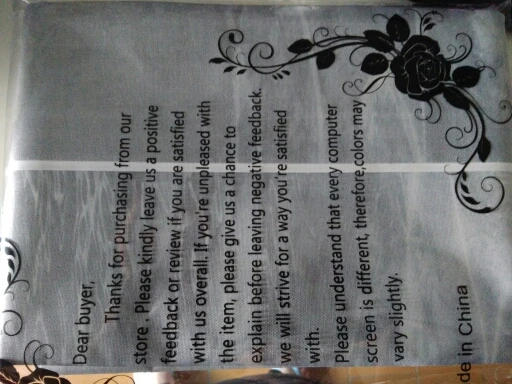 Dear buyer,
Thanks for purchasing from our
store . Please kindly leave us a positive
feedback or review if you are satisfied
with us overall. If you're unpleased with
the item, please give us a chance to
explain before leaving negative feedback.
we will strive for a way you're satisfied
with.
Please understand that every computer
screen is different, therefore,colors may
vary slightly.
de in China